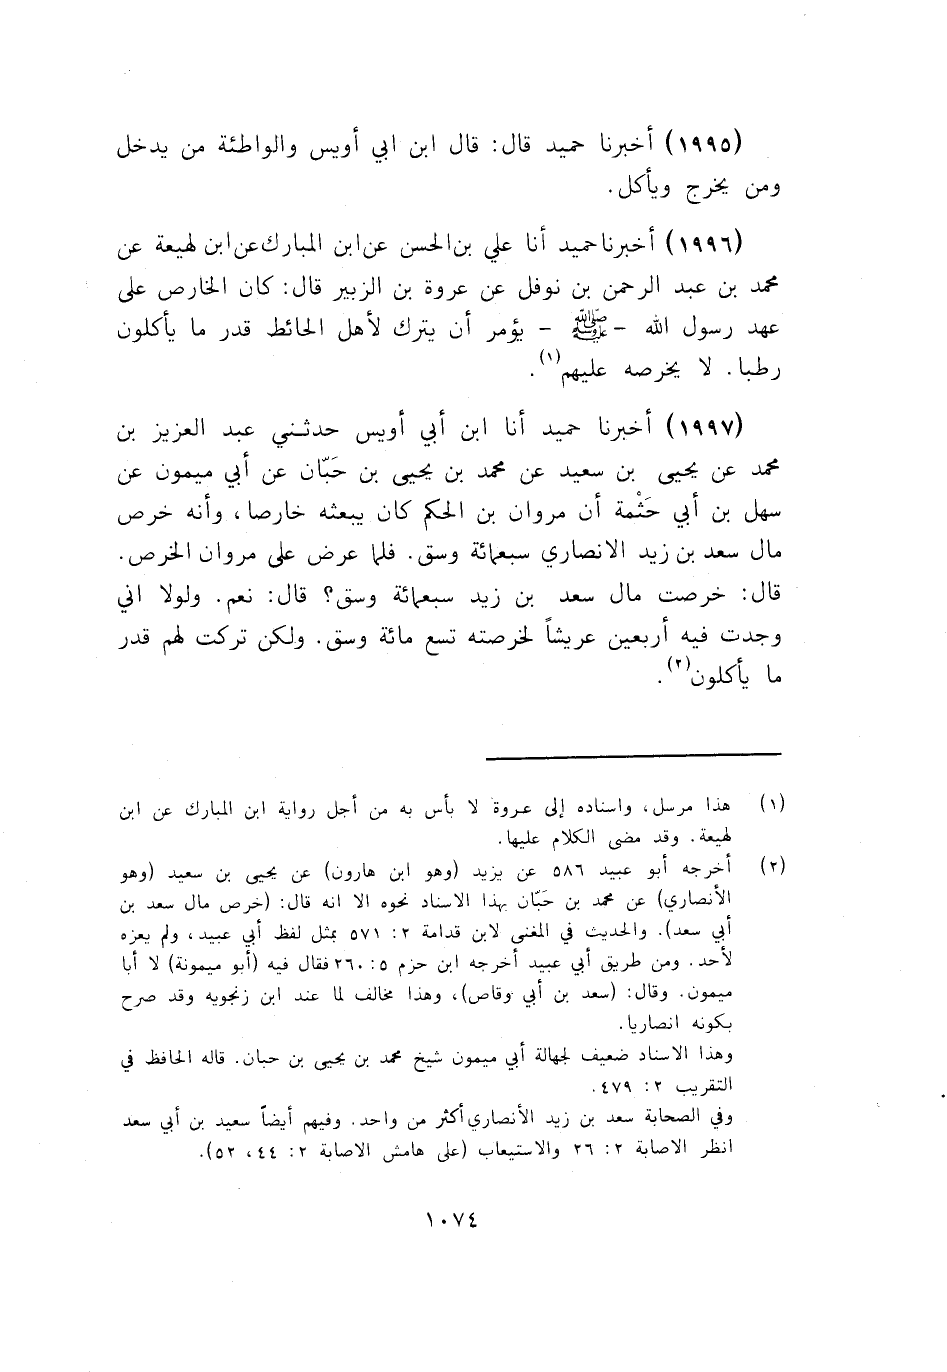 (١٩٩٥) أخبرنا حميد قال: قال ابن ابي أويس والواطئة من يدخل
ومن يخرج ويأكل.
(١٩٩٦) أخبرنا حميد أنا علي بن الحسن عن ابن المبارك عن ابن لهيعة عن
محمد بن عبد الرحمن بن نوفل عن عروة بن الزبير قال: كان الخارص على
عهد رسول الله - ﷺ - يؤمر أن يترك لأهل الحائط قدر ما يأكلون
رطبا. لا يخرصه عليهم(١).
(١٩٩٧) أخبرنا حميد أنا ابن أبي أويس حدثني عبد العزيز بن
محمد عن يحيى بن سعيد عن محمد بن يحيى بن حَبّان عن أبي ميمون عن
سهل بن أبي حَثْمة أن مروان بن الحكم كان يبعثه خارصا، وأنه خرص
مال سعد بن زيد الانصاري سبعمائة وسق. فلما عرض على مروان الخرص.
قال: خرصت مال سعد بن زيد سبعمائة وسق؟ قال: نعم. ولولا اني
وجدت فيه أربعين عريشاً لخرصته تسع مائة وسق. ولكن تركت لهم قدر
ما يأكلون(٢).
(١) هذا مرسل، واسناده إلى عروة لا بأس به من أجل رواية ابن المبارك عن ابن
لهيعة. وقد مضى الكلام عليها.
(٢) أخرجه أبو عبيد ٥٨٦ عن يزيد (وهو ابن هارون) عن يحيى بن سعيد (وهو
الأنصاري) عن محمد بن حَبّان بهذا الاسناد نحوه الا انه قال: (خرص مال سعد بن
أبي سعد). والحديث في المغنى لابن قدامة ٢: ٥٧١ بمثل لفظ أبي عبيد، ولم يعزه
لأحد. ومن طريق أبي عبيد أخرجه ابن حزم ٥: ٢٦٠ فقال فيه (أبو ميمونة) لا أبا
ميمون. وقال: (سعد بن أبي وقاص)، وهذا مخالف لما عند ابن زنجويه وقد صرح
بكونه انصاريا.
وهذا الاسناد ضعيف لجهالة أبي ميمون شيخ محمد بن يحيى بن حبان. قاله الحافظ في
التقريب ٢: ٤٧٩.
وفي الصحابة سعد بن زيد الأنصاري أكثر من واحد. وفيهم أيضاً سعيد بن أبي سعد
انظر الاصابة ٢: ٢٦ والاستيعاب (على هامش الاصابة ٢: ٤٤، ٥٢).
١٠٧٤